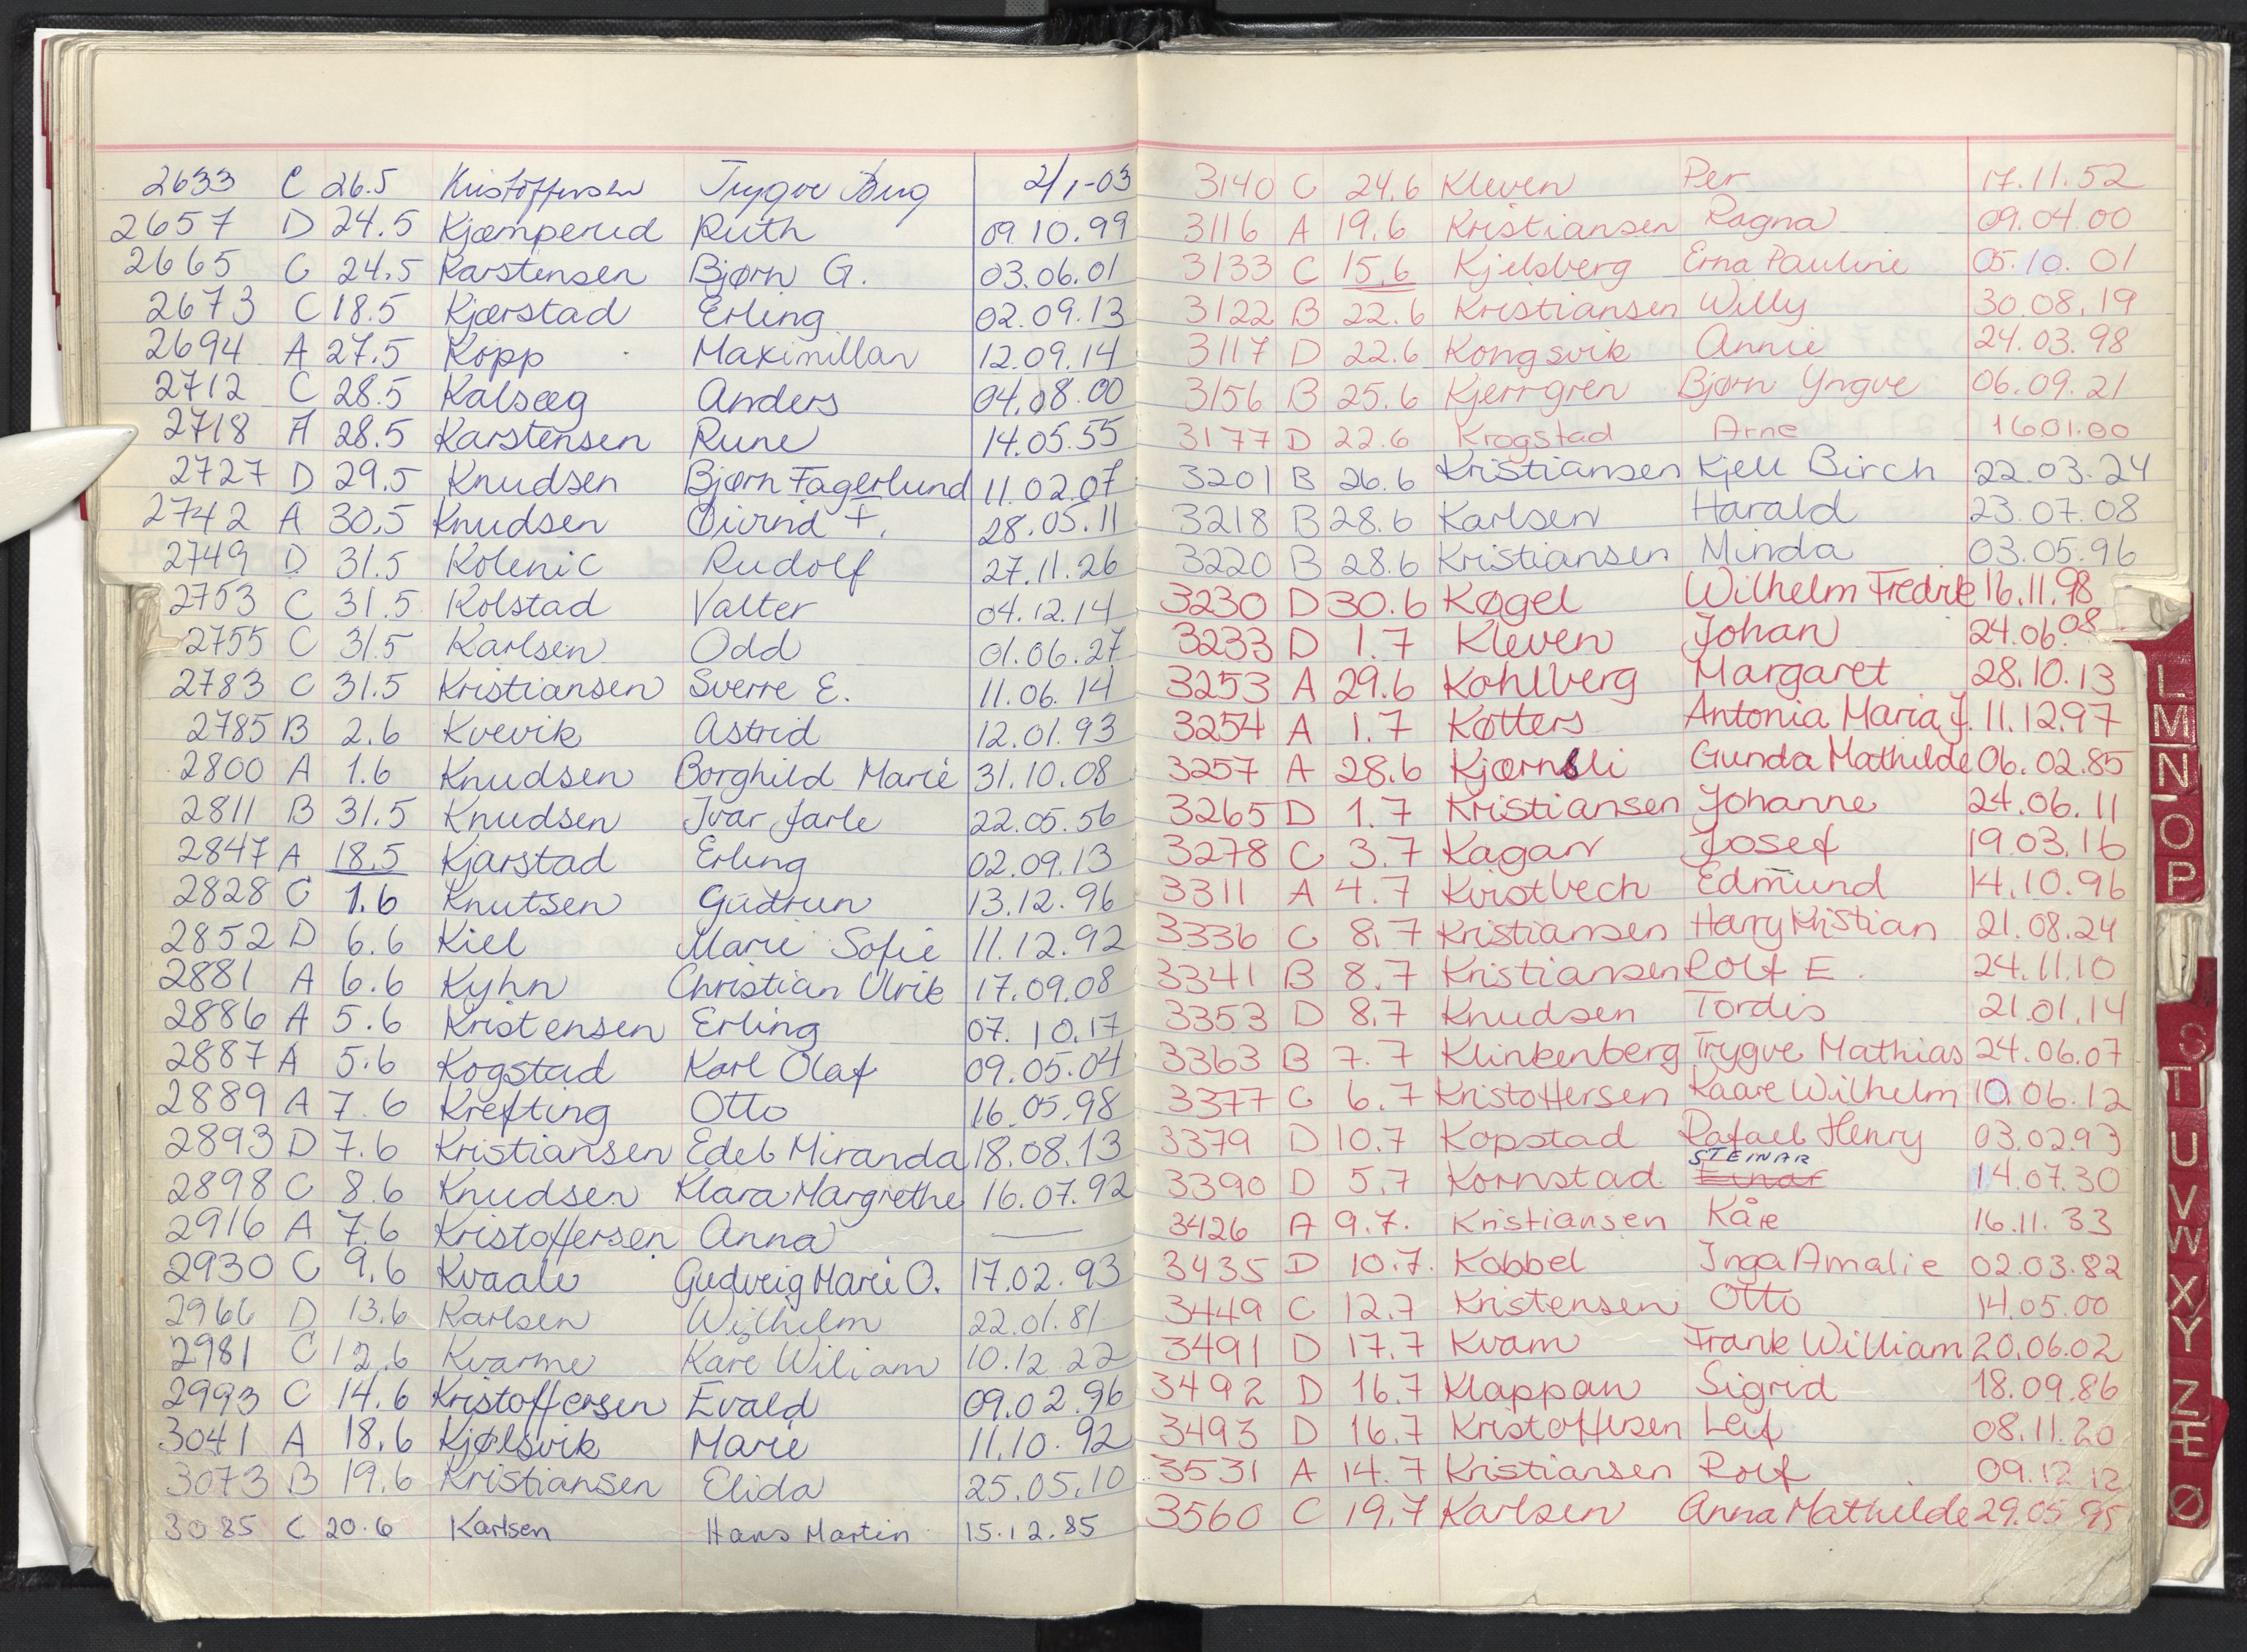 2633 C 26.5 Kristoffersen Trygve 2/1-03
2657 D 24.5 Kjæmperud Ruth 09.10.99
2665 C 24.5 Karstensen Bjørn G. 03.06.01
2673 C 18.5 Kjærstad Erling 02.09.13
2694 A 27.5 Kopp Maximillan 12.09.14
2712 C 28.5 Kalsæg Anders 04.08.00
2718 A 28.5 Karstensen Rune 14.05.55
2727 D 29.5 Knudsen Bjørn Fagerlund 11.02.07
2742 A 30.5 Knudsen Øivind F. 28.05.11
2749 D 31.5 Kolenic Rudolf 27.11.26
2753 C 31.5 Kolstad Valter 04.12.14
2755 C 31.5 Karlsen Odd 01.06.27
2783 C 31.5 Kristiansen Sverre E. 11.06.14
2785 B 2.6 Kvevik Astrid 12.01.93
2800 A 1.6 Knudsen Borghild Marie 31.10.08
2811 B 31.5 Knudsen Ivar Jarle 22.05.56
2847 A 18.5 Kjarstad Erling 02.09.13
2828 C 1.6 Knutsen Gudrun 13.12.96
2852 D 6.6 Kiel Marie Sofie 11.12.92
2881 A 6.6 Kyhn Christian Ulrik 17.09.08
2886 A 5.6 Kristensen Erling 07.10.17
2887 A 5.6 Kogstad Karl Olaf 09.05.04
2889 A 7.6 Krefting Otto 16.05.98
2893 D 7.6 Kristiansen Edel Miranda 18.08.13
2898 C 8.6 Knudsen Klara Margrethe 16.07.92
2916 A 7.6 Kristoffersen Anna —
2930 C 9.6 Kvaale Gudveig Marie O. 17.02.93
2966 D 13.6 Karlsen Wilhelm 22.01.81
2981 C 12.6 Kvarme Kåre Wiliam 10.12.22
2993 C 14.6 Kristoffersen Evald 09.02.96
3041 A 18.6 Kjølsvik Marie 11.10.92
3073 B 19.6 Kristiansen Elida 25.05.10
3085 C 20.6 Karlsen Hans Martin 15.12.85
3140 C 24.6 Kleven Per 17.11.52
3116 A 19.6 Kristiansen Ragna 09.04.00
3133 C 15.6 Kjelsberg Erna Pauline 05.10.01
3122 B 22.6 Kristiansen Willy 30.08.19
3117 D 22.6 Kongsvik Annie 24.03.98
3156 B 25.6 Kjerrgren Bjørn Yngve 06.09.21
3177 D 22.6 Krogstad Arne 16.01.00
3201 B 26.6 Kristiansen Kjell Birch 22.03.24
3218 B 28.6 Karlsen Harald 23.07.08
3220 B 28.6 Kristiansen Minda 03.05.96
3230 D 30.6 Køgel Wilhelm Fredrik 16.11.98
3233 D 1.7 Kleven Johan 24.06.08
3253 A 29.6 Kohlberg Margaret 28.10.13
3254 A 1.7 Køtters Antonia Maria J. 11.12.97
3257 A 28.6 Kjærnsli Gunda Mathilde 06.02.85
3265 D 1.7 Kristiansen Johanne 24.06.11
3278 C 3.7 Kagan Josef 19.03.16
3311 A 4.7 Kvistbech Edmund 14.10.96
3336 C 8.7 Kristiansen Harry Kristian 21.08.24
3341 B 8.7 Kristiansen Rolf E. 24.11.10
3353 D 8.7 Knudsen Tordis 21.01.14
3363 B 7.7 Klinkenberg Trygve Mathias 24.06.07
3377 C 6.7 Kristoffersen Kaare Wilhelm 10.06.12
3379 D 10.7 Kopstad Rafael Henry 03.02.93
STEINAR
3390 D 5.7 Kornstad Einar 14.07.30
3426 A 9.7. Kristiansen Kåre 16.11.33
3435 D 10.7. Kobbel Inga Amalie 02.03.82
3449 C 12.7 Kristensen Otto 14.05.00
3491 D 17.7 Kvam Frank William 20.06.02
3492 D 16.7 Klappan Sigrid 18.09.86
3493 D 16.7 Kristoffersen Leif 08.11.20
3531 A 14.7 Kristiansen Rolf 09.12.12
3560 C 19.7 Karlsen Anna Mathilde 29.05.95
L
M
N
O
P
S
T
U
V
W
X
Y
Z
Æ
Ø